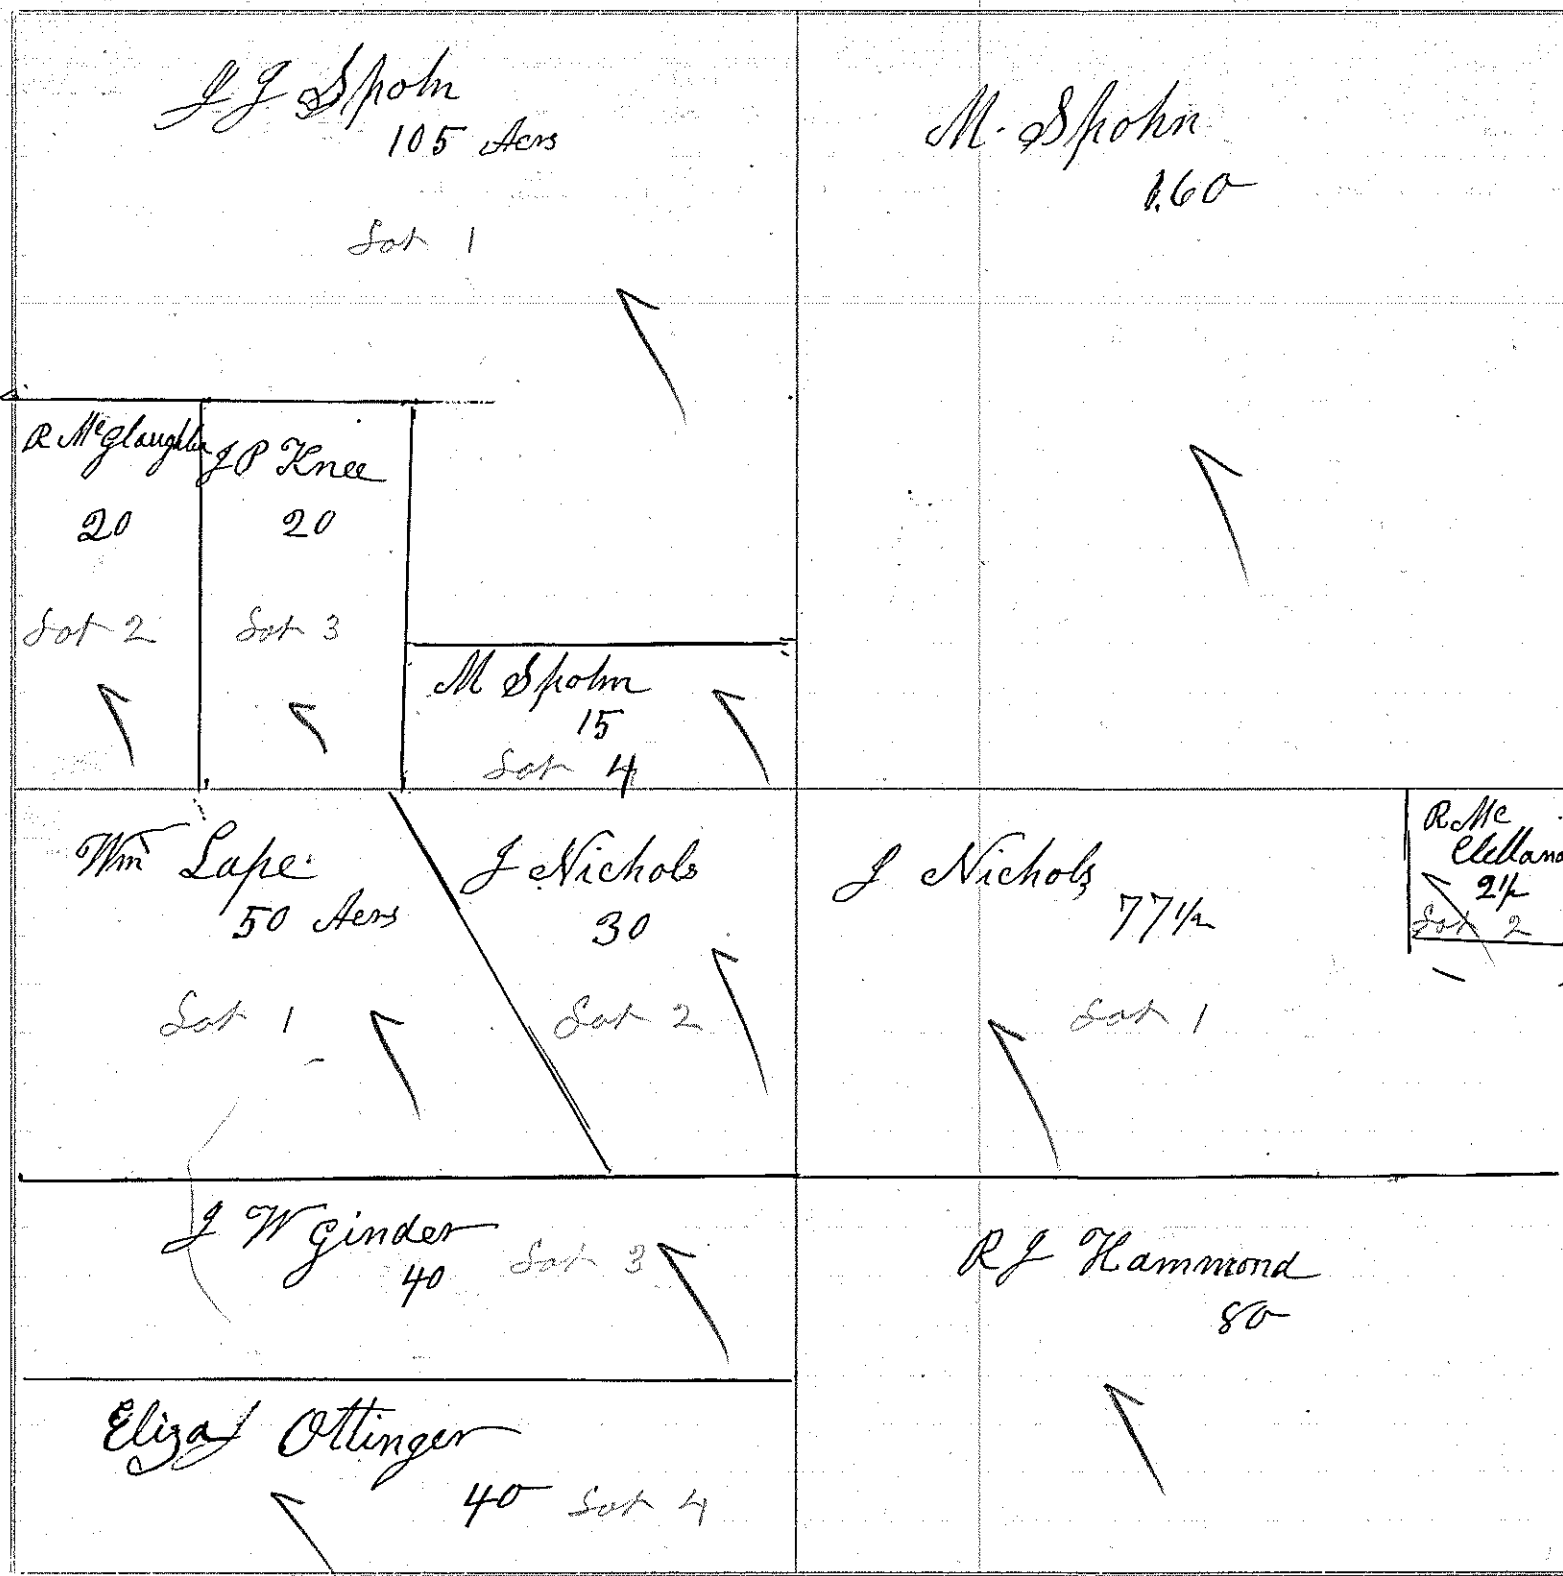 J J Spohn
105 Acrs
Lot 1
M. Spohn
160
R McGlaughlin
20
Lot 2
J P Knee
20
Lot 3
M Spohn
15
Lot 4
Wm Lape
50 Acrs
Lot 1
J Nichols
30
Lot 2
J Nichols
77 1/2
Lot 1
R Mc
Clelland
2 1/2
Lot 2
J W Ginder
40
Lot 3
R J Hammond
80
Eliza J Ottinger
40 Lot 4